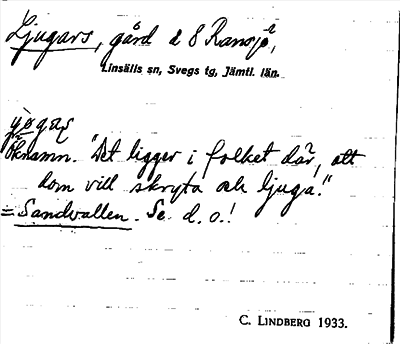 Ljugars, gård å 8 Ransjö,
Linsälls sn, Svegs tg, Jämtl. län.
jögaʂ
Öknamn. "Det ligger i folket där, att
dom vill skryta och ljuga."
= Sandvallen. Se d. o.!
C. LINDBERG 1933.